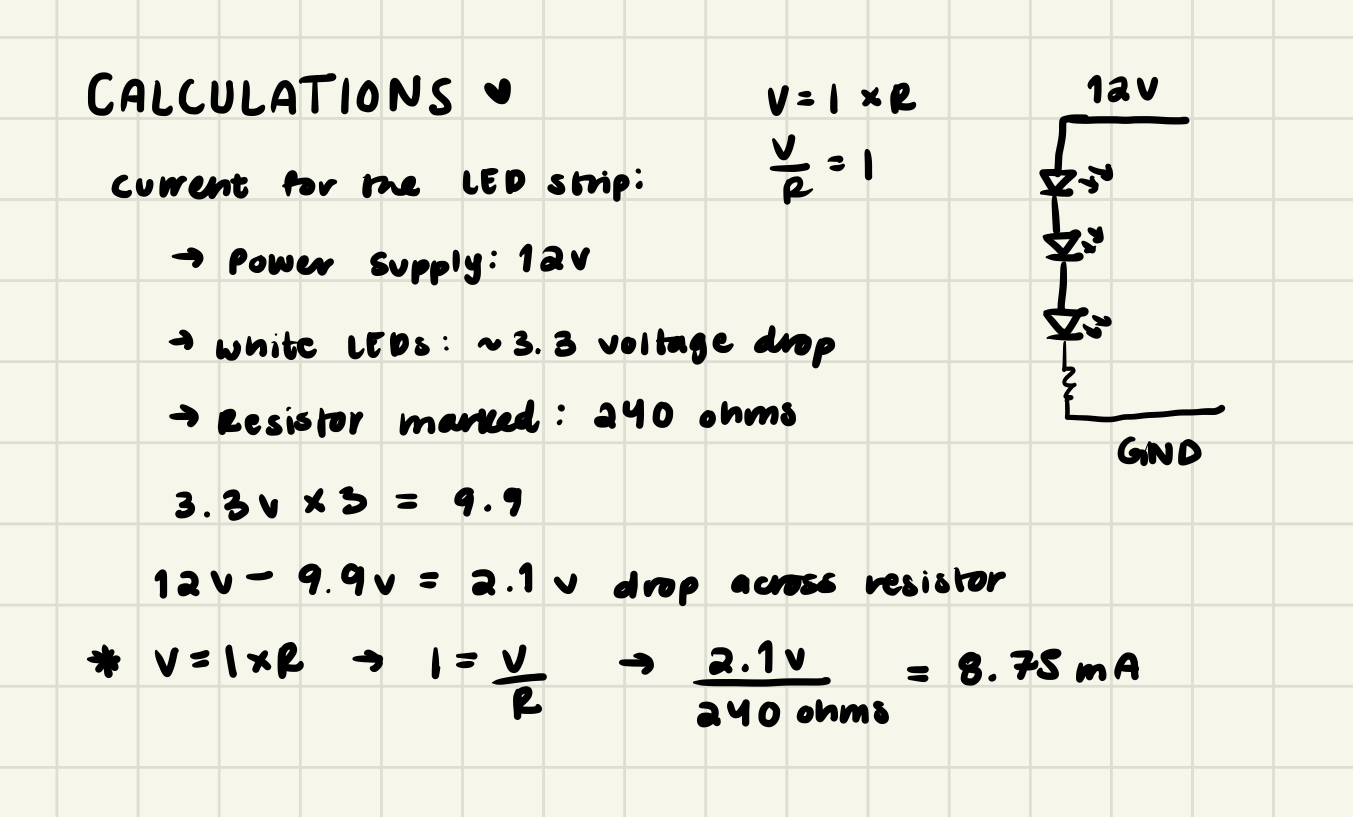 CALCULATIONS ♥
V = I × R
V/R = I
12V
current for the LED strip:
→ Power supply: 12V
→ white LEDs: ~3.3 voltage drop
→ Resistor marked: 240 ohms
GND
3.3V × 3 = 9.9
12V - 9.9V = 2.1V drop across resistor
* V = I × R → I = V/R → 2.1V/240 ohms = 8.75 mA